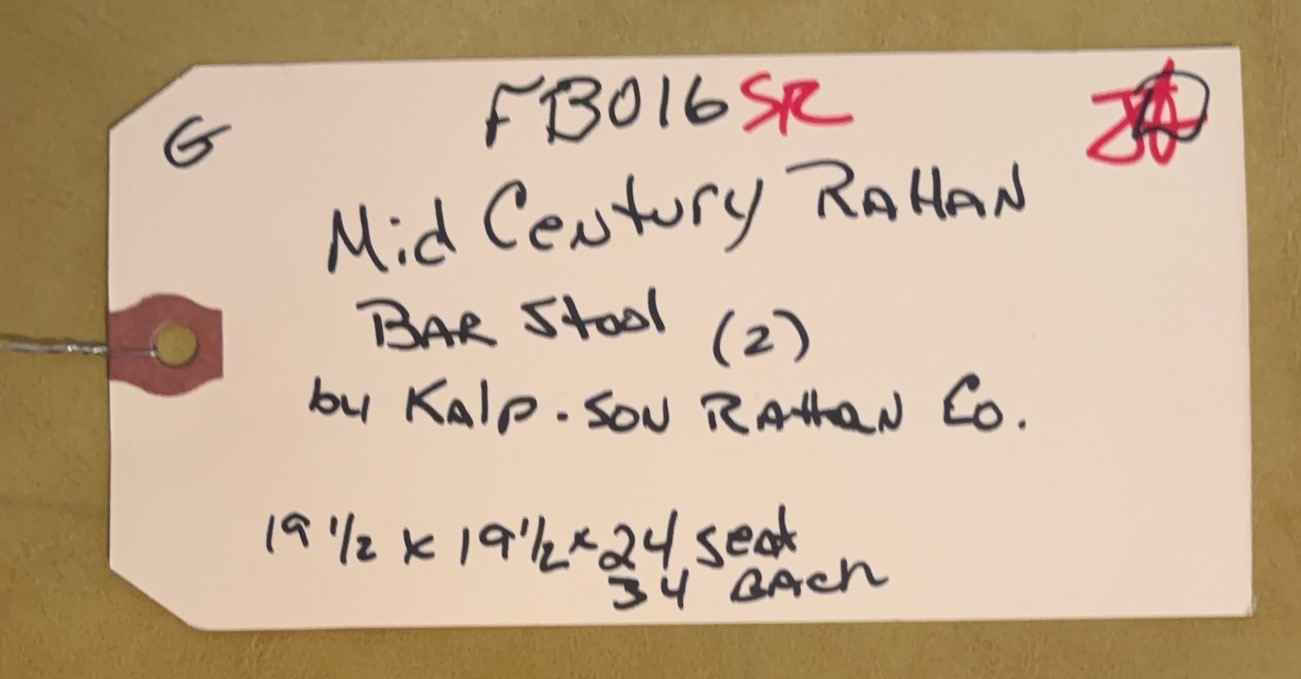 G
FB016 SR
Mid Century Rattan
Bar Stool (2)
by Kalp-son Rattan Co.
19 1/2 x 19 1/2 x 24 seat
34 Back